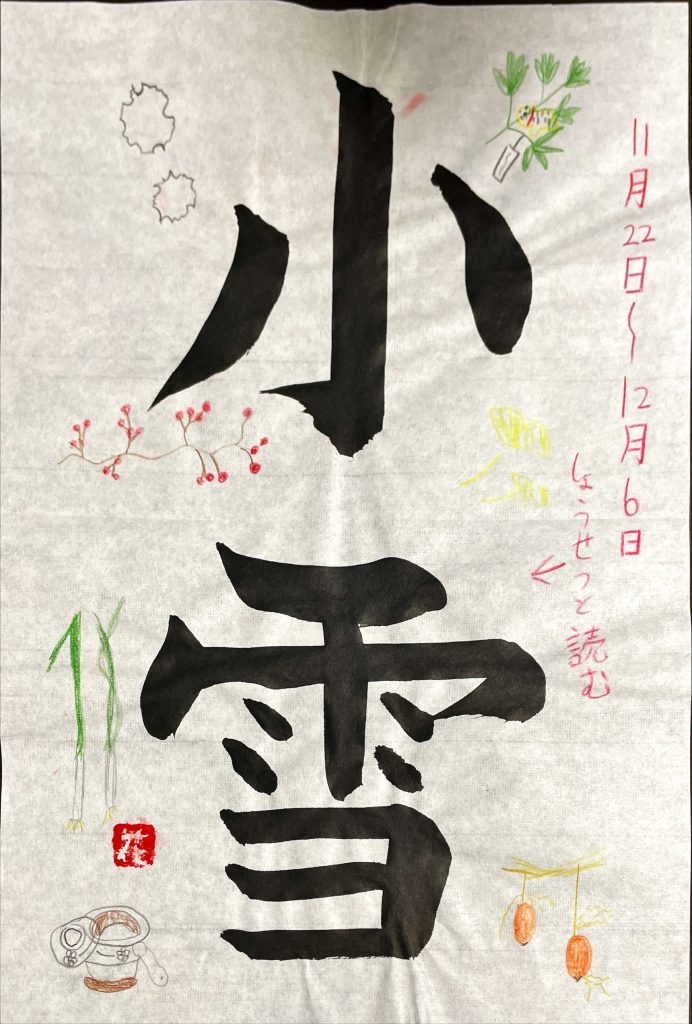 11月22日〜12月6日
しょうせつと読む
小雪
花